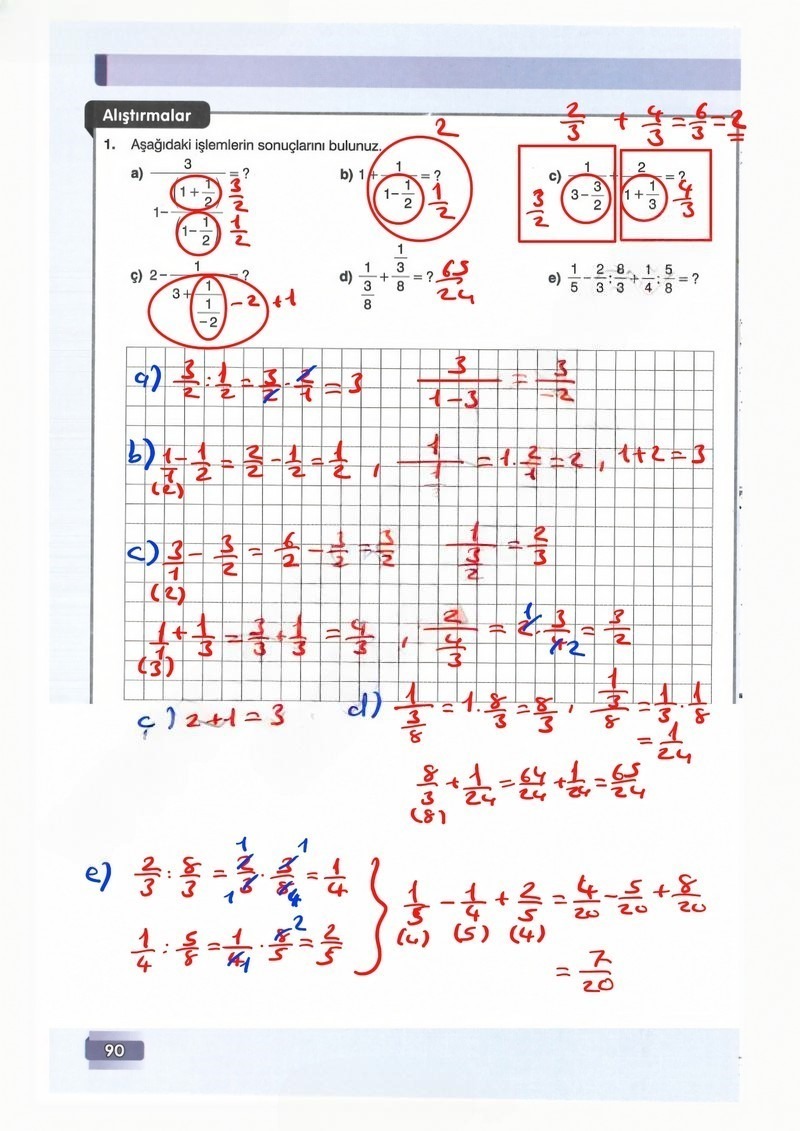 Alıştırmalar
2/3 + 4/3 = 6/3 = 2
1. Aşağıdaki işlemlerin sonuçlarını bulunuz.
2
a) 3/(1-(1+1/2)/(1-1/2)) = ? 3/2 1/2
b) 1+1/(1-1/2) = ? 1/2
c) 1/(3-3/2) + 2/(1+1/3) = ? 3/2 4/3
ç) 2-1/(3+1/(1/-2)) = ? -2 +1
d) 1/(3/8) + (1/3)/8 = ? 65/24
e) 1/5 - 2/3 : 8/3 + 1/4 : 5/8 = ?
a) 3/2 : 1/2 = 3/2 · 2/1 = 3 3/(1-3) = 3/-2
b) 1/1 - 1/2 = 2/2 - 1/2 = 1/2 , 1/1 = 1 · 2/1 = 2 , 1+2 = 3
(2)
c) 3/1 - 3/2 = 6/2 - 3/2 = 3/2 1/(3/2) = 2/3
(2)
1/1 + 1/3 = 3/3 + 1/3 = 4/3 , 2/(4/3) = 2 · 3/4 = 3/2
(3) 1 2
ç) 2+1 = 3
d) 1/(3/8) = 1 · 8/3 = 8/3 , (1/3)/8 = 1/3 · 1/8
= 1/24
8/3 + 1/24 = 64/24 + 1/24 = 65/24
(8)
e) 2/3 : 8/3 = 2/3 · 3/8 = 1/4
1 1 1 4
1/4 : 5/8 = 1/4 · 8/5 = 2/5
2 1
1/5 - 1/4 + 2/5 = 4/20 - 5/20 + 8/20
(4) (5) (4)
= 7/20
90